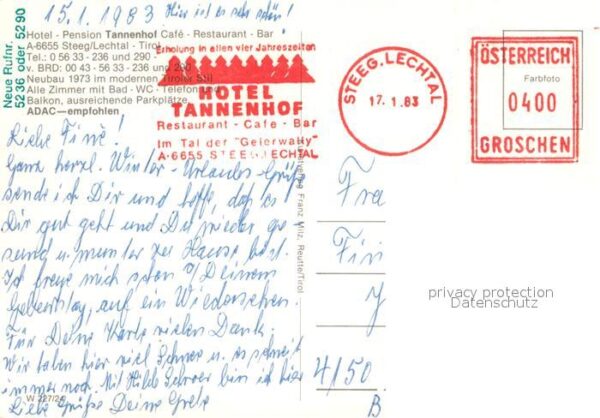 15.1.1983 Hier ist es sehr schön!
Neue Rufnr.
5236 oder 5290
Hotel - Pension Tannenhof Café - Restaurant - Bar
A-6655 Steeg/Lechtal - Tirol
Tel.: 0 56 33 - 236 und 290 -
v. BRD: 00 43 - 56 33 - 236 und 290
Neubau 1973 im modernen Tiroler Stil
Alle Zimmer mit Bad - WC - Telefon und
Balkon, ausreichende Parkplätze,
ADAC—empfohlen
Erholung in allen vier Jahreszeiten
HOTEL
TANNENHOF
Restaurant - Cafe - Bar
Im Tal der "Geierwally"
A-6655 STEEG.LECHTAL
STEEG.LECHTAL
17. 1.83
ÖSTERREICH
Farbfoto
0400
GROSCHEN
Liebe Fine!
Ganz herzl. Winter-Urlaubs-Grüße
sende ich Dir und hoffe, daß es
Dir gut geht und Du wieder ge-
sund u. munter zu Hause bist.
Ich freue mich schon Deinem
Geburtstag, auf ein Wiedersehen.
Für Deine Karte vielen Dank.
Wir haben hier viel Schnee u. es schneit
immer noch. Mit Hilde bin ich hier
Liebe Grüße Deine Grete
W 227/24
Franz Milz, Reutte/Tirol
Fra
Fin
4/50
B
privacy protection
Datenschutz